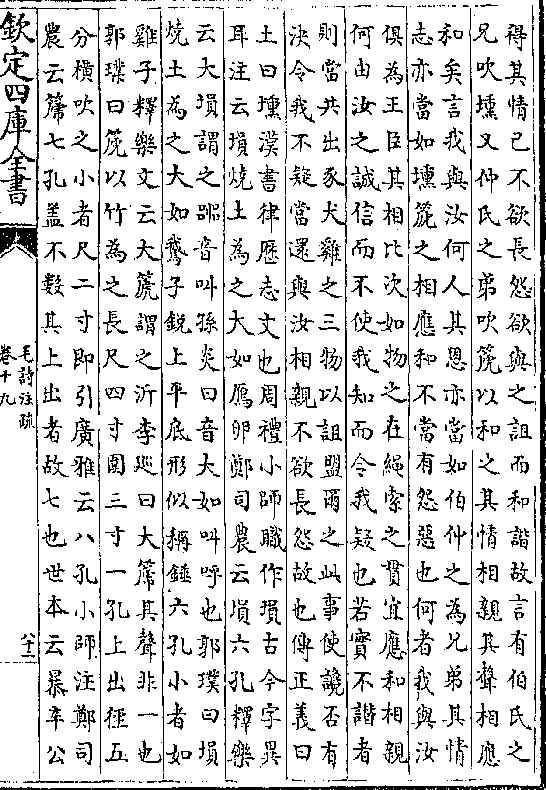 得其情己不欲長怨欲與之詛而和諧故言有伯氏之
兄吹壎又仲氏之弟吹篪以和之其情相親其聲相應
和矣言我與汝何人其恩亦當如伯仲之為兄弟其情
志亦當如壎篪之相應和不當有怨惡也何者我與汝
俱為王臣其相比次如物之在繩索之貫宜應和相親
何由汝之誠信而不使我知而令我疑也若實不諧者
則當共出豕犬雞之三物以詛盟爾之此事使讒否有
決令我不疑當還與汝相親不欲長怨故也傳正義曰
土曰壎漢書律歴志文也周禮小師職作塤古今字異
耳注云塤燒土為之大如鴈卵鄭司農云塤六孔釋樂
云大塤謂之䶵音叫孫炎曰音大如叫呼也郭璞曰塤
燒土為之大如鵞子鋭上平底形似稱錘六孔小者如
雞子釋樂文云大篪謂之沂李廵曰大篪其聲非一也
郭璞曰篪以竹為之長尺四寸圍三寸一孔上出徑五
分橫吹之小者尺二寸即引廣雅云八孔小師注鄭司
農云篪七孔蓋不數其上出者故七也世本云暴辛公
欽定四庫全書
毛詩注疏
卷十九